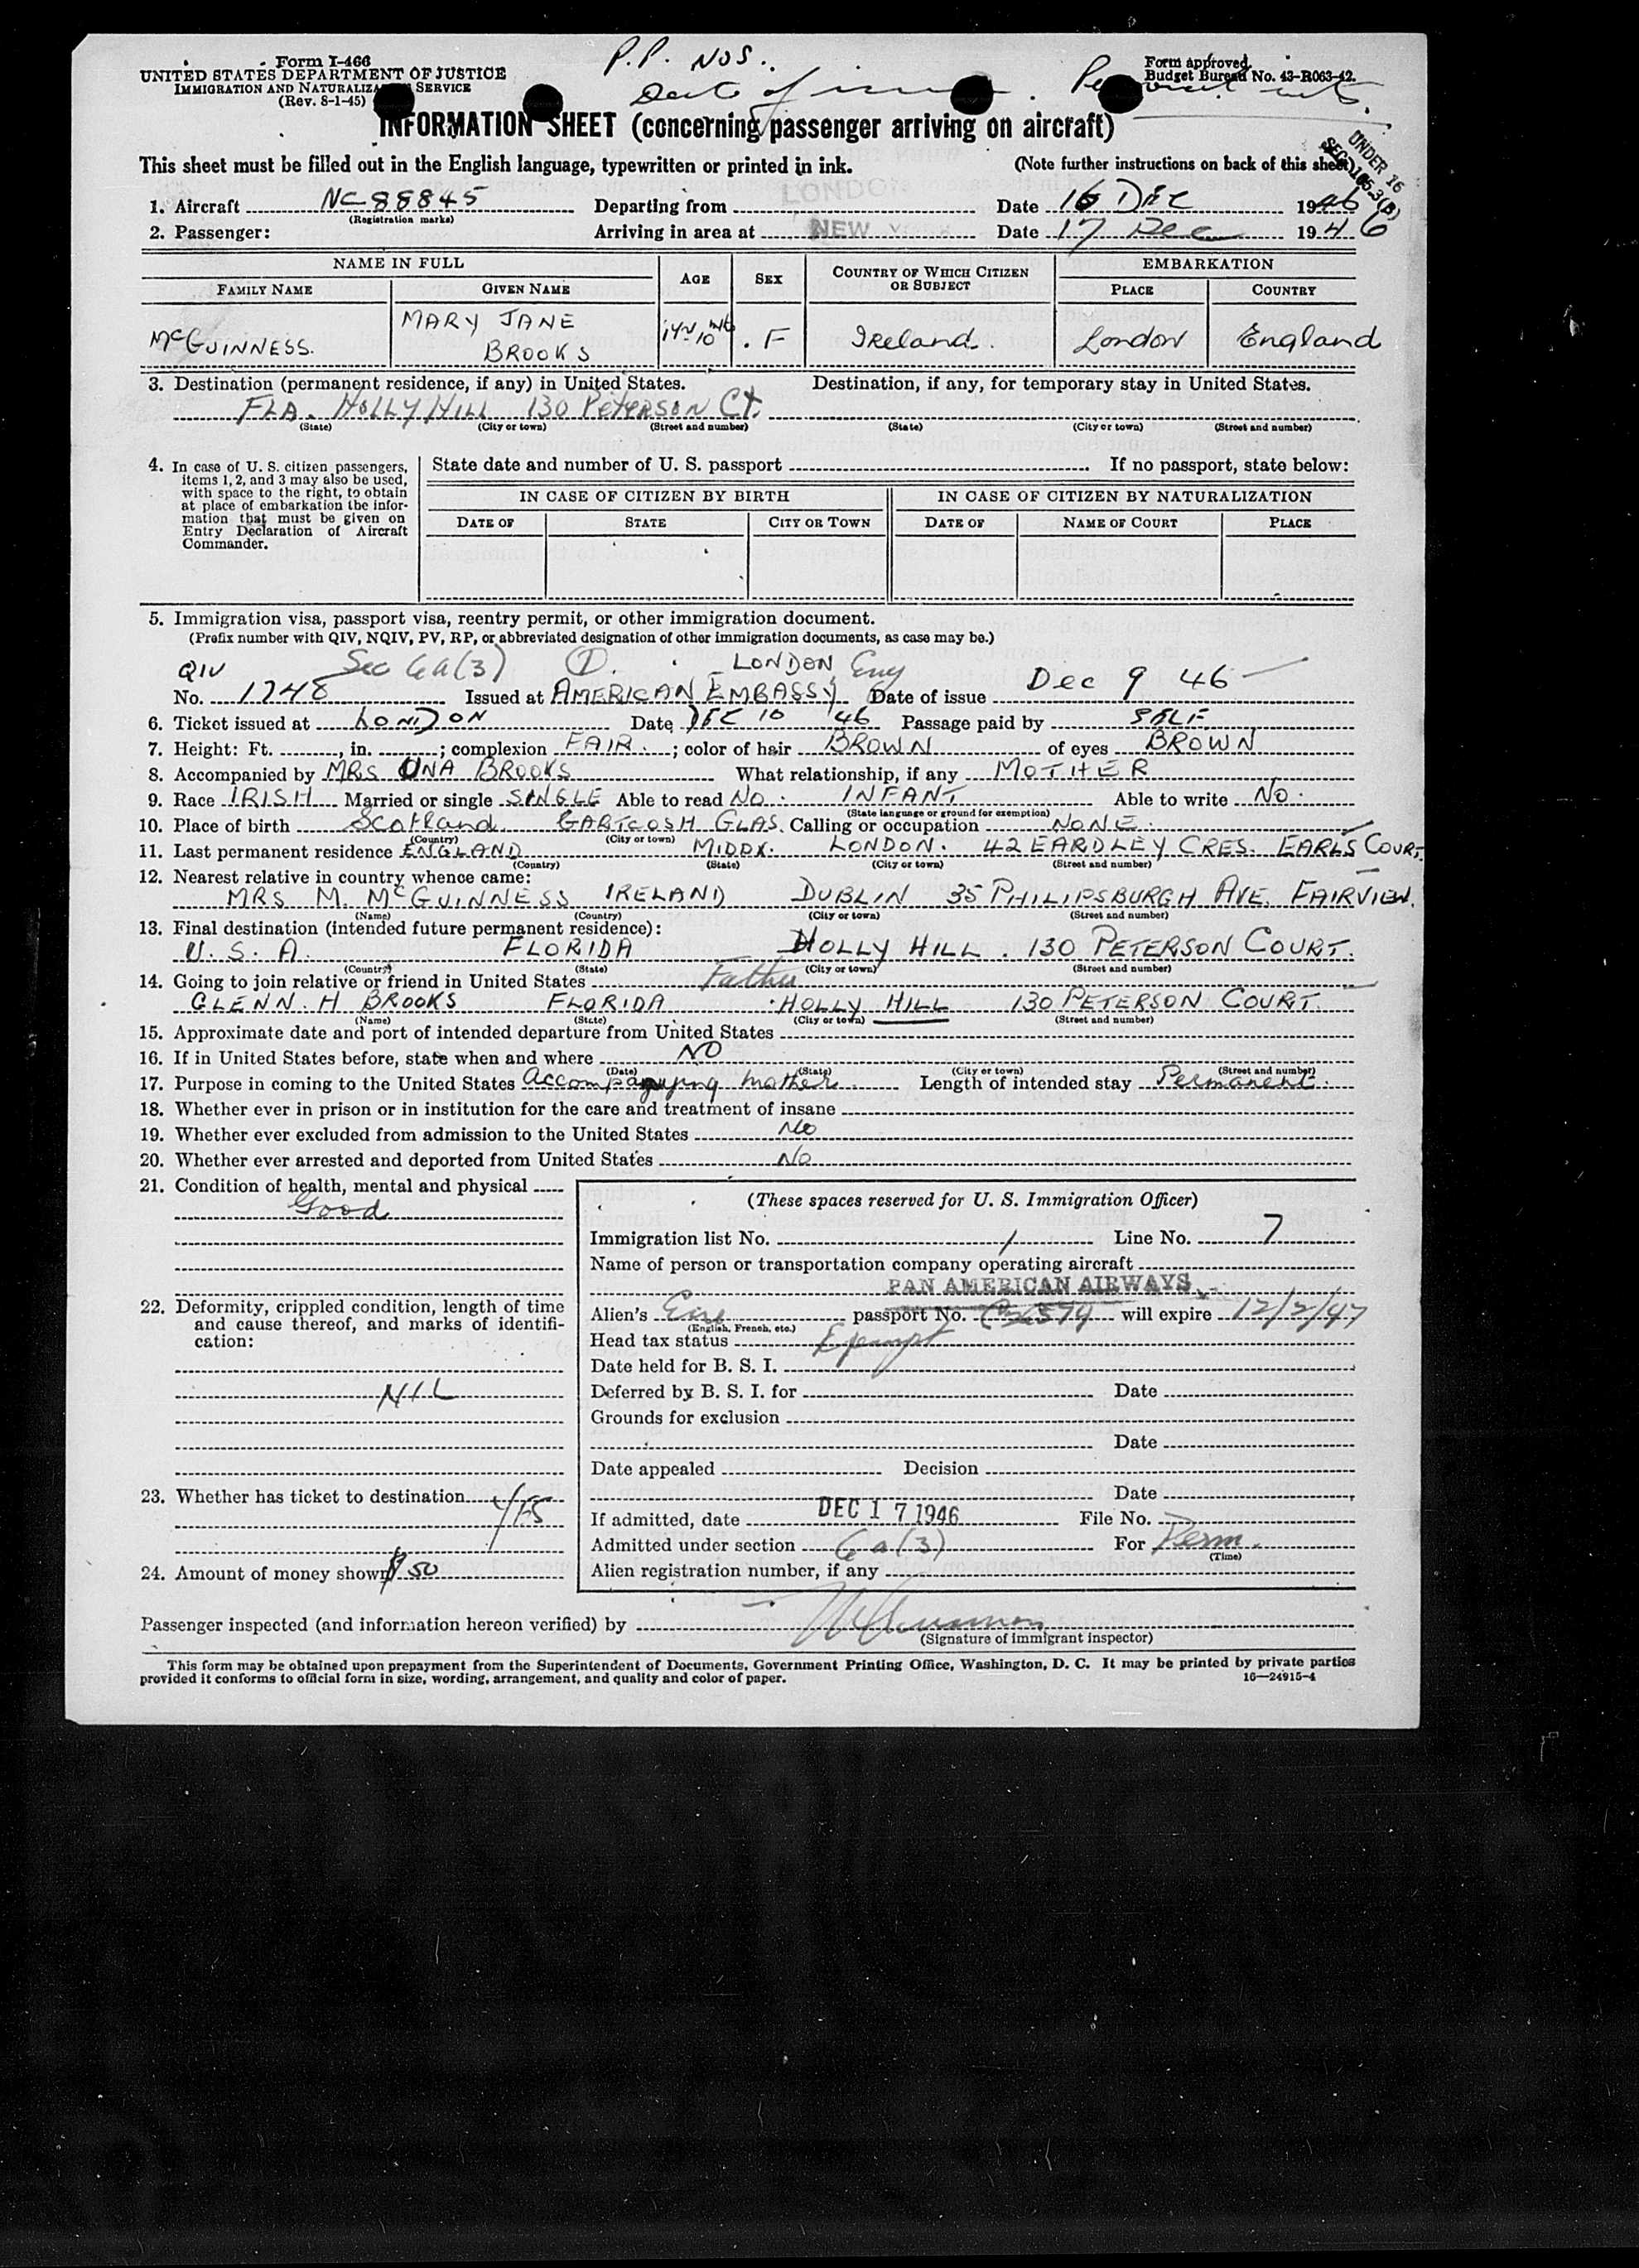 Form I-466
UNITED STATES DEPARTMENT OF JUSTICE
IMMIGRATION AND NATURALIZATION SERVICE
(Rev. 8-1-45)
P.P. NOS.
Date of
Form approved.
Budget Bureau No. 43-R063-42.
INFORMATION SHEET (concerning passenger arriving on aircraft)
UNDER 16
This sheet must be filled out in the English language, typewritten or printed in ink. (Note further instructions on back of this sheet)
LONDON
1. Aircraft NC-88845 Departing from Date 16 DEC 1946
(Registration marks)
2. Passenger: Arriving in area at NEW YORK Date 17 Dec 1946
NAME IN FULL AGE SEX COUNTRY OF WHICH CITIZEN OR SUBJECT EMBARKATION
FAMILY NAME GIVEN NAME PLACE COUNTRY
McGUINNESS. MARY JANE BROOKS F Ireland. London England
3. Destination (permanent residence, if any) in United States. Destination, if any, for temporary stay in United States.
FLA. HOLLY HILL 130 PETERSON CT.
(State) (City or town) (Street and number) (State) (City or town) (Street and number)
4. In case of U. S. citizen passengers, items 1, 2, and 3 may also be used, with space to the right, to obtain at place of embarkation the information that must be given on Entry Declaration of Aircraft Commander.
State date and number of U. S. passport If no passport, state below:
IN CASE OF CITIZEN BY BIRTH IN CASE OF CITIZEN BY NATURALIZATION
DATE OF STATE CITY OR TOWN DATE OF NAME OF COURT PLACE
5. Immigration visa, passport visa, reentry permit, or other immigration document.
(Prefix number with QIV, NQIV, PV, RP, or abbreviated designation of other immigration documents, as case may be.)
QIV Sec 6a(3) LONDON Eng
No. 1748 Issued at AMERICAN EMBASSY Date of issue Dec 9 46
6. Ticket issued at LONDON Date DEC 10 '46 Passage paid by SELF
7. Height: Ft. , in. ; complexion FAIR. ; color of hair BROWN of eyes BROWN
8. Accompanied by MRS UNA BROOKS What relationship, if any MOTHER
9. Race IRISH Married or single SINGLE Able to read NO. INFANT Able to write NO.
(State language or ground for exemption)
10. Place of birth Scotland GARTCOSH GLAS. Calling or occupation NONE.
(Country) (City or town)
11. Last permanent residence ENGLAND MIDDX. LONDON. 42 EARDLEY CRES. EARLS COURT.
(Country) (State) (City or town) (Street and number)
12. Nearest relative in country whence came:
MRS M. McGUINNESS IRELAND DUBLIN 35 PHILIPSBURGH AVE. FAIRVIEW.
(Name) (Country) (City or town) (Street and number)
13. Final destination (intended future permanent residence):
U. S. A. FLORIDA HOLLY HILL. 130 PETERSON COURT.
(Country) (State) (City or town) (Street and number)
14. Going to join relative or friend in United States Father
GLENN. H BROOKS FLORIDA HOLLY HILL 130 PETERSON COURT.
(Name) (State) (City or town) (Street and number)
15. Approximate date and port of intended departure from United States
16. If in United States before, state when and where NO
(Date) (State) (City or town) (Street and number)
17. Purpose in coming to the United States accompanying mother. Length of intended stay Permanent.
18. Whether ever in prison or in institution for the care and treatment of insane
19. Whether ever excluded from admission to the United States No
20. Whether ever arrested and deported from United States No
21. Condition of health, mental and physical
Good
22. Deformity, crippled condition, length of time and cause thereof, and marks of identification:
NIL
23. Whether has ticket to destination YES
24. Amount of money shown $50
(These spaces reserved for U. S. Immigration Officer)
Immigration list No. 1 Line No. 7
Name of person or transportation company operating aircraft
PAN AMERICAN AIRWAYS
Alien's Eire passport No. will expire 12/2/47
(English, French, etc.)
Head tax status Exempt
Date held for B. S. I.
Deferred by B. S. I. for Date
Grounds for exclusion
Date
Date appealed Decision
Date
If admitted, date DEC 17 1946 File No.
Admitted under section 6a(3) For Perm.
(Time)
Alien registration number, if any
Passenger inspected (and information hereon verified) by
(Signature of immigrant inspector)
This form may be obtained upon prepayment from the Superintendent of Documents, Government Printing Office, Washington, D. C. It may be printed by private parties
provided it conforms to official form in size, wording, arrangement, and quality and color of paper. 16—24915-4